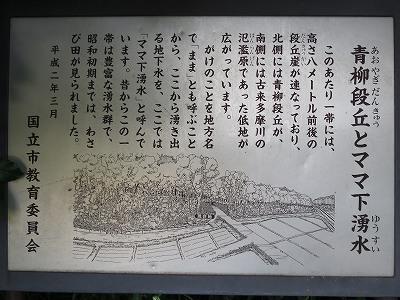 青柳段丘とママ下湧水
あおやぎだんきゅう
ゆうすい
このあたり一帯には、
高さ八メートル前後の
段丘崖が連なっており、
北側には青柳段丘が、
南側には古来多摩川の
氾濫原であった低地が
広がっています。
がけのことを地方名
で「まま」とも呼ぶこと
から、ここから湧き出
る地下水を、ここでは
「ママ下湧水」と呼んで
います。昔からこの一
帯は豊富な湧水群で、
昭和初期までは、わさ
び田が見られました。
平成二年三月
国立市教育委員会